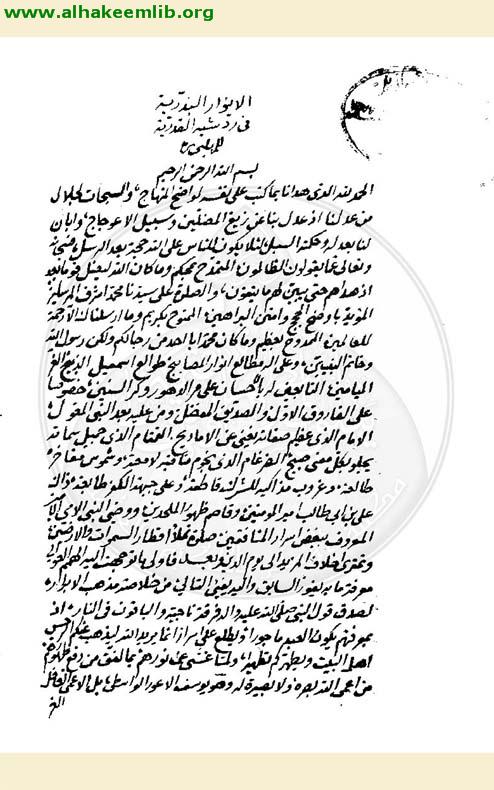 www.alhakeemlib.org
الانوار البدرية
فى رد شبه القدرية
للمهلبى
بسم الله الرحمن الرحيم
الحمد لله الذى هدانا بما كتب على نفسه لواضح المنهاج والسبحات لجلال
من عدلنا اذ عدل بنا عن زيغ المضلين وسبيل الاعوجاج وابان
لنا بعدله وحكمة السبل لئلا يكون للناس على الله حجة بعد الرسل
وتعالى عما يقولون الظالمون الممتدح بمحكم وما كان الله ليضل قوما بعد
اذ هداهم حتى يبين لهم ما يتقون والصلوة على سيدنا محمد اشرف المرسلين
المؤيد باوضح الحجج وامتن البراهين الممنوح بكريم وما ارسلناك الا رحمة
للعالمين الممدوح بعظيم وما كان محمد ابا احد من رجالكم ولكن رسول الله
وخاتم النبيين وعلى اله مطالع انوار المصابيح طوالع اسمعيل الذبيح الغر
الميامين التابعين له باحسان على مر الدهور وكر السنين خصوصا
على الفاروق الاول والصديق المفضل ومن عليه بعد النبى المعول
الامام الذى عظم صفاته يغنى عن الاماديح القمقام الذى جميل سماته
يجلو بكل معنى صبيح الضرغام الذى نجوم مناقبه لامعة وشموس مفاخره
طالعة وغروب مذاكيه للشرك قاطعة وعلى جبهة الكفر طابعة
على بن ابى طالب امير المومنين وقاصم ظهور الملحدين ووصى النبى الامى
المعروف ببغض اسرار المنافقين صلوة تملأ اقطار السموات والارضين
وتمترى اخلاف المزيد الى يوم الدين وبعد فاولى ما توجهت اليه الهمم العوالى
معرفة ما به يفوز السابق واليه يفىء التالى من خلاصة مذهب الابرار
لصدق قول النبى صلى الله عليه واله فرقة ناجية والباقون فى النار اذ
بمعرفتهم يكون العبد ماجورا ويطلع على اسرار انما يريد الله ليذهب عنكم الرجس
اهل البيت ويطهركم تطهيرا ولما عشى عن نورهم بما لفق من رفع ظهورهم
من اعمى الله بصره ولا بصيرة له وهو يوسف الاعور الواسطى بل الاعمى الغافل